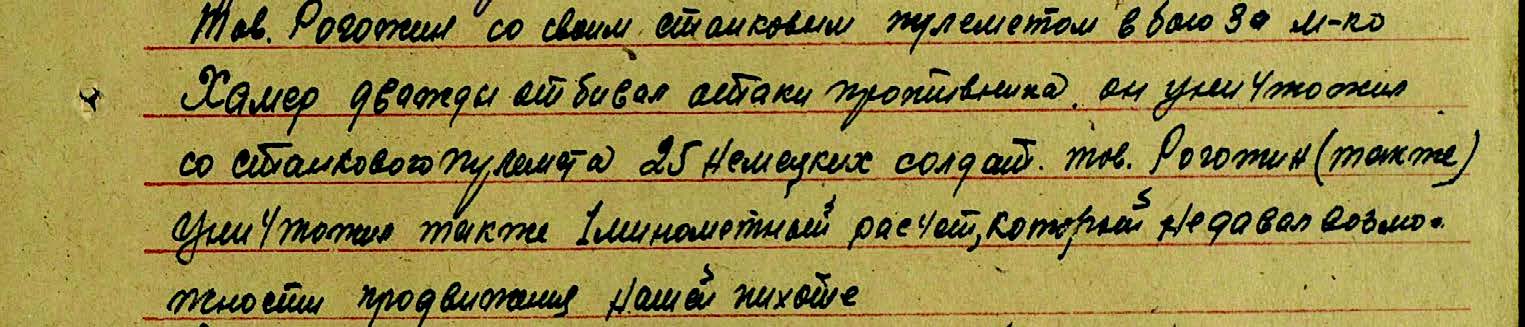 Тов. Рогожин со своим станковым пулеметом в бою за м-ко
Хамер дважды отбивал атаки противника, он уничтожил
со станкового пулемета 25 немецких солдат. тов. Рогожин (также)
уничтожил также 1 минометный расчет, который не давал возмо-
жности продвижения нашей пихоте